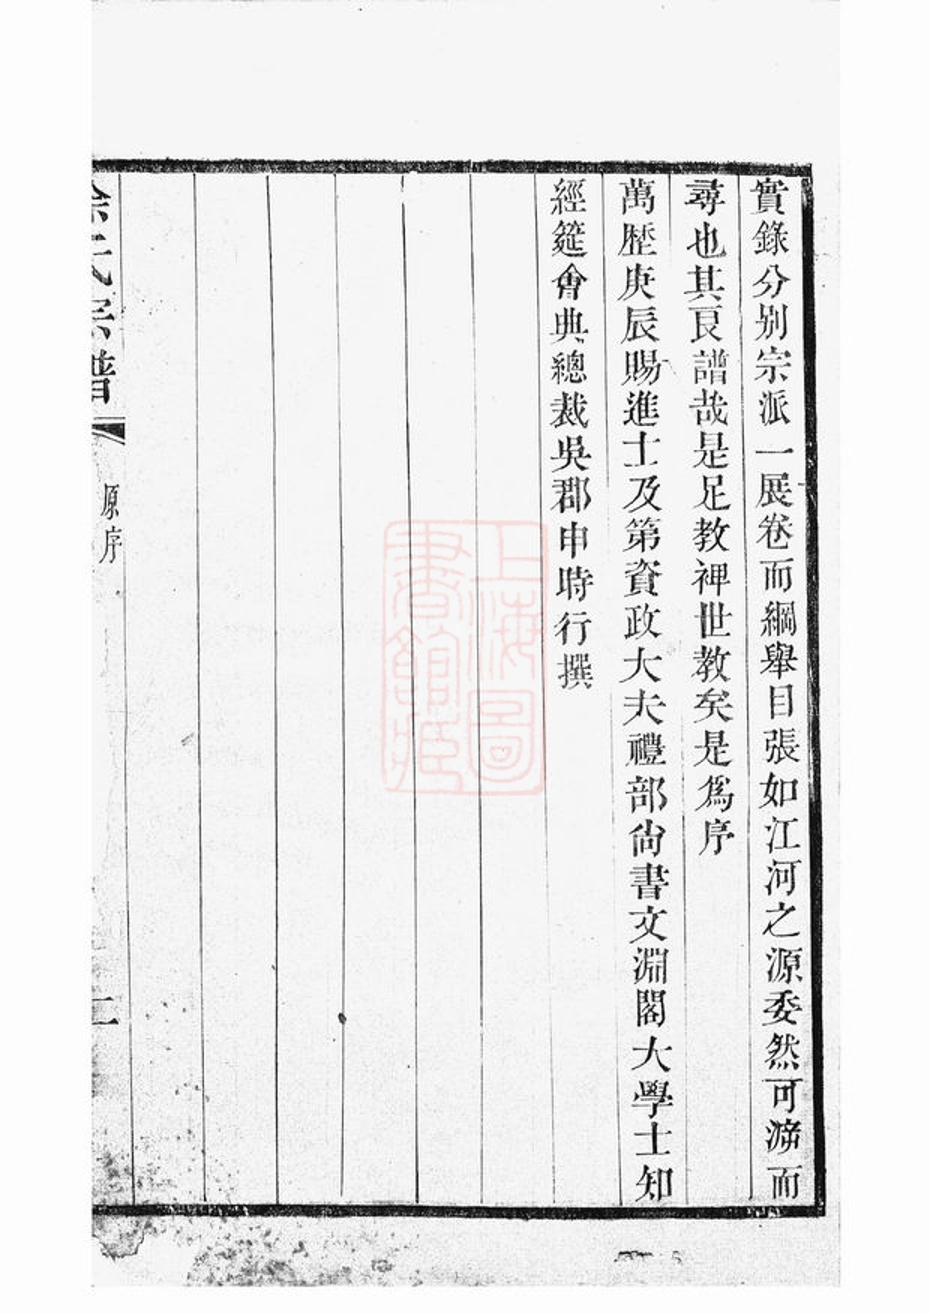 實錄分别宗派一展卷而綱舉目張如江河之源委然可溯而
尋也其良譜哉是足教裨世教矣是爲序
萬歷庚辰賜進士及第資政大夫禮部尚書文淵閣大學士知
經筵會典總裁吳郡申時行撰
氏宗譜
原序
二
上海圖
書館藏